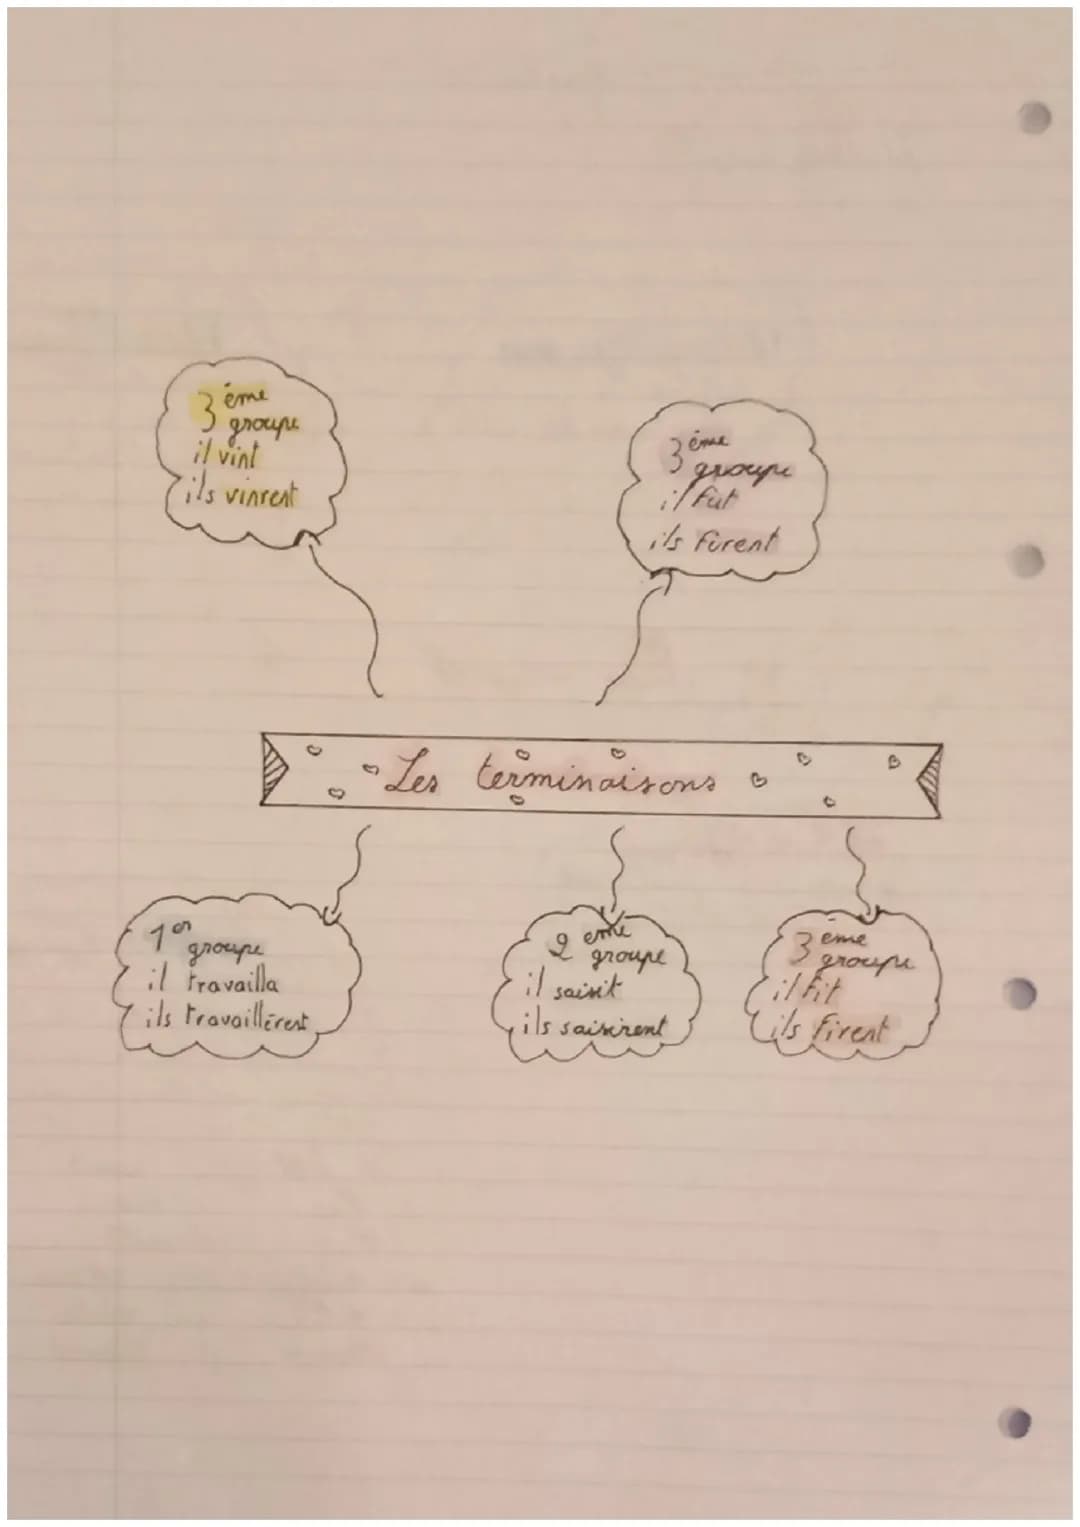 3ème
groupe
il vint
ils vinrent
3ème
groupe
il fut
ils furent
Les terminaisons
1er
groupe
il travailla
ils travaillèrent
2ème
groupe
il saisit
ils saisirent
3ème
groupe
il fit
ils firent